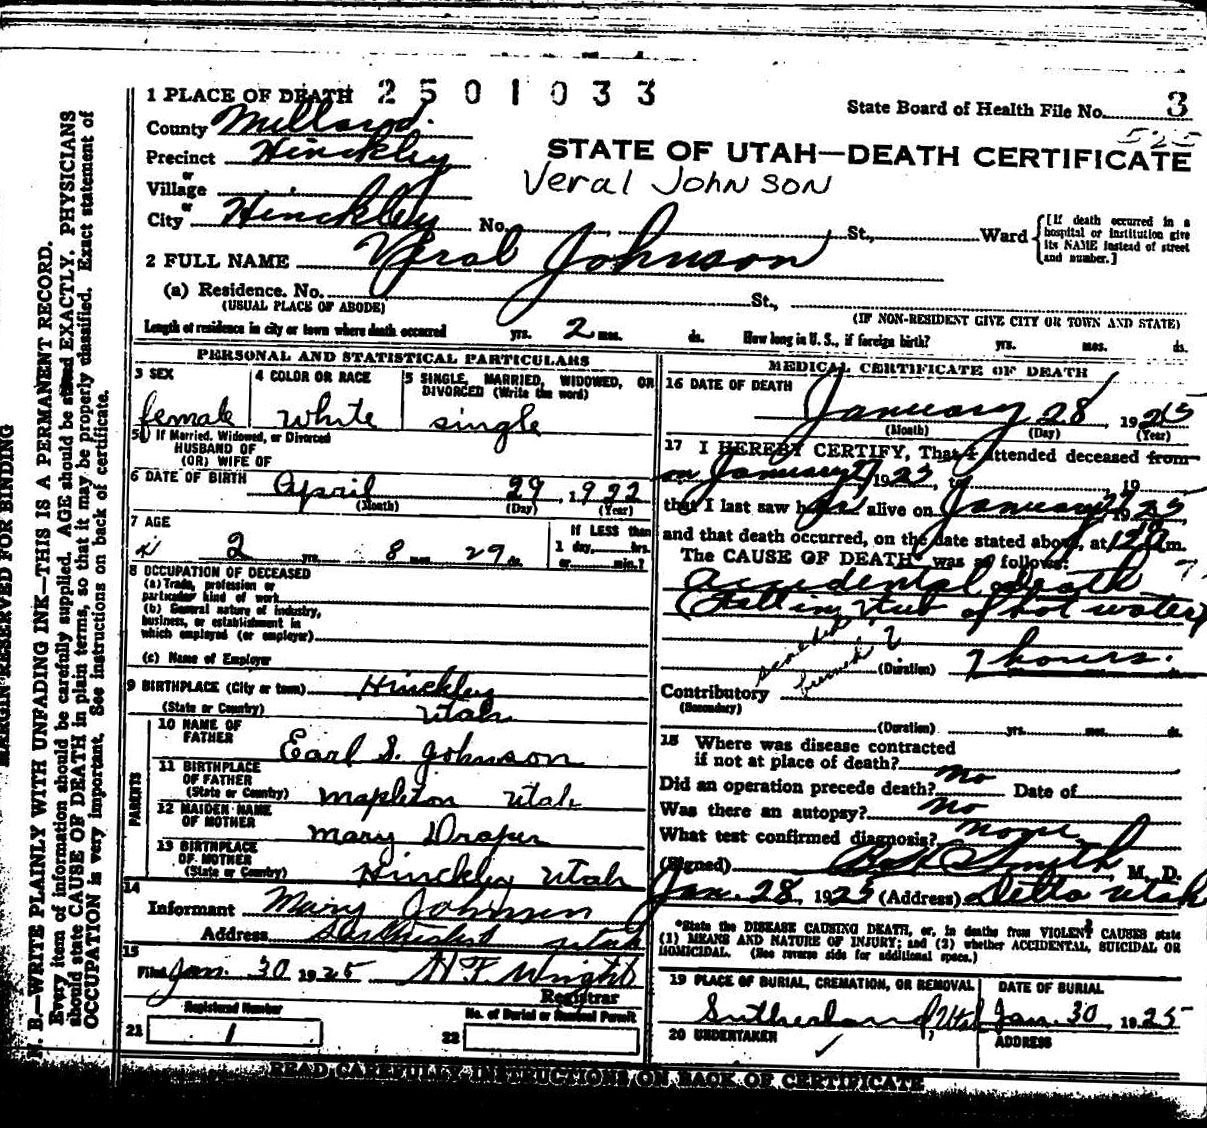 MARGIN RESERVED FOR BINDING
N. B.—WRITE PLAINLY WITH UNFADING INK—THIS IS A PERMANENT RECORD.
Every item of information should be carefully supplied. AGE should be stated EXACTLY. PHYSICIANS
should state CAUSE OF DEATH in plain terms, so that it may be properly classified. Exact statement of
OCCUPATION is very important. See instructions on back of certificate.
2501033
1 PLACE OF DEATH
State Board of Health File No. 3
525
County Millard.
Precinct Hinckley
STATE OF UTAH—DEATH CERTIFICATE
Veral JOHNSON
or
Village
or
City Hinckley No. St., Ward
[If death occurred in a
hospital or institution give
its NAME instead of street
and number.]
2 FULL NAME Veral Johnson
(a) Residence. No. St.,
(USUAL PLACE OF ABODE)
(IF NON-RESIDENT GIVE CITY OR TOWN AND STATE)
Length of residence in city or town where death occurred yrs. 2 mos. ds. How long in U. S., if foreign birth? yrs. mos. ds.
PERSONAL AND STATISTICAL PARTICULARS
3 SEX
female
4 COLOR OR RACE
white
5 SINGLE, MARRIED, WIDOWED, OR
DIVORCED (Write the word)
single
If Married, Widowed, or Divorced
HUSBAND OF
(OR) WIFE OF
6 DATE OF BIRTH April 29, 1922
(Month) (Day) (Year)
7 AGE
2 yrs. 8 mos. 29 ds.
If LESS than
1 day, hrs.
or min.?
8 OCCUPATION OF DECEASED
(a) Trade, profession or
particular kind of work
(b) General nature of industry,
business, or establishment in
which employed (or employer)
(c) Name of Employer
9 BIRTHPLACE (City or town) Hinckley
(State or Country) Utah
PARENTS
10 NAME OF
FATHER Earl S. Johnson
11 BIRTHPLACE
OF FATHER
(State or Country) Mapleton Utah
12 MAIDEN NAME
OF MOTHER Mary Draper
13 BIRTHPLACE
OF MOTHER
(State or Country) Hinckley Utah
14
Informant Mary Johnson
Address Utah
15
Filed Jan. 30 1925 H F Wright
Registrar
Registered Number
21 1
No. of Burial or Removal Permit
22
MEDICAL CERTIFICATE OF DEATH
16 DATE OF DEATH
January 28 1925
(Month) (Day) (Year)
17 I HEREBY CERTIFY, That I attended deceased from
on January 1925, to 19
that I last saw her alive on January 1925
and that death occurred, on the date stated above, at m.
The CAUSE OF DEATH* was as follows:
accidental death
(Falling in tub of hot water)
scalded
burned ?
(Duration) 7 hours.
Contributory
(Secondary)
(Duration) yrs. mos. ds.
18 Where was disease contracted
if not at place of death?
Did an operation precede death? no Date of
Was there an autopsy? no
What test confirmed diagnosis? none
(Signed) Smith, M. D.
Jan. 28, 1925 (Address) Delta Utah
*State the DISEASE CAUSING DEATH, or, in deaths from VIOLENT CAUSES state
(1) MEANS AND NATURE OF INJURY; and (2) whether ACCIDENTAL, SUICIDAL OR
HOMICIDAL. (See reverse side for additional space.)
19 PLACE OF BURIAL, CREMATION, OR REMOVAL
Sutherland, Utah
DATE OF BURIAL
Jan. 30, 1925
20 UNDERTAKER
ADDRESS
READ CAREFULLY INSTRUCTIONS ON BACK OF CERTIFICATE